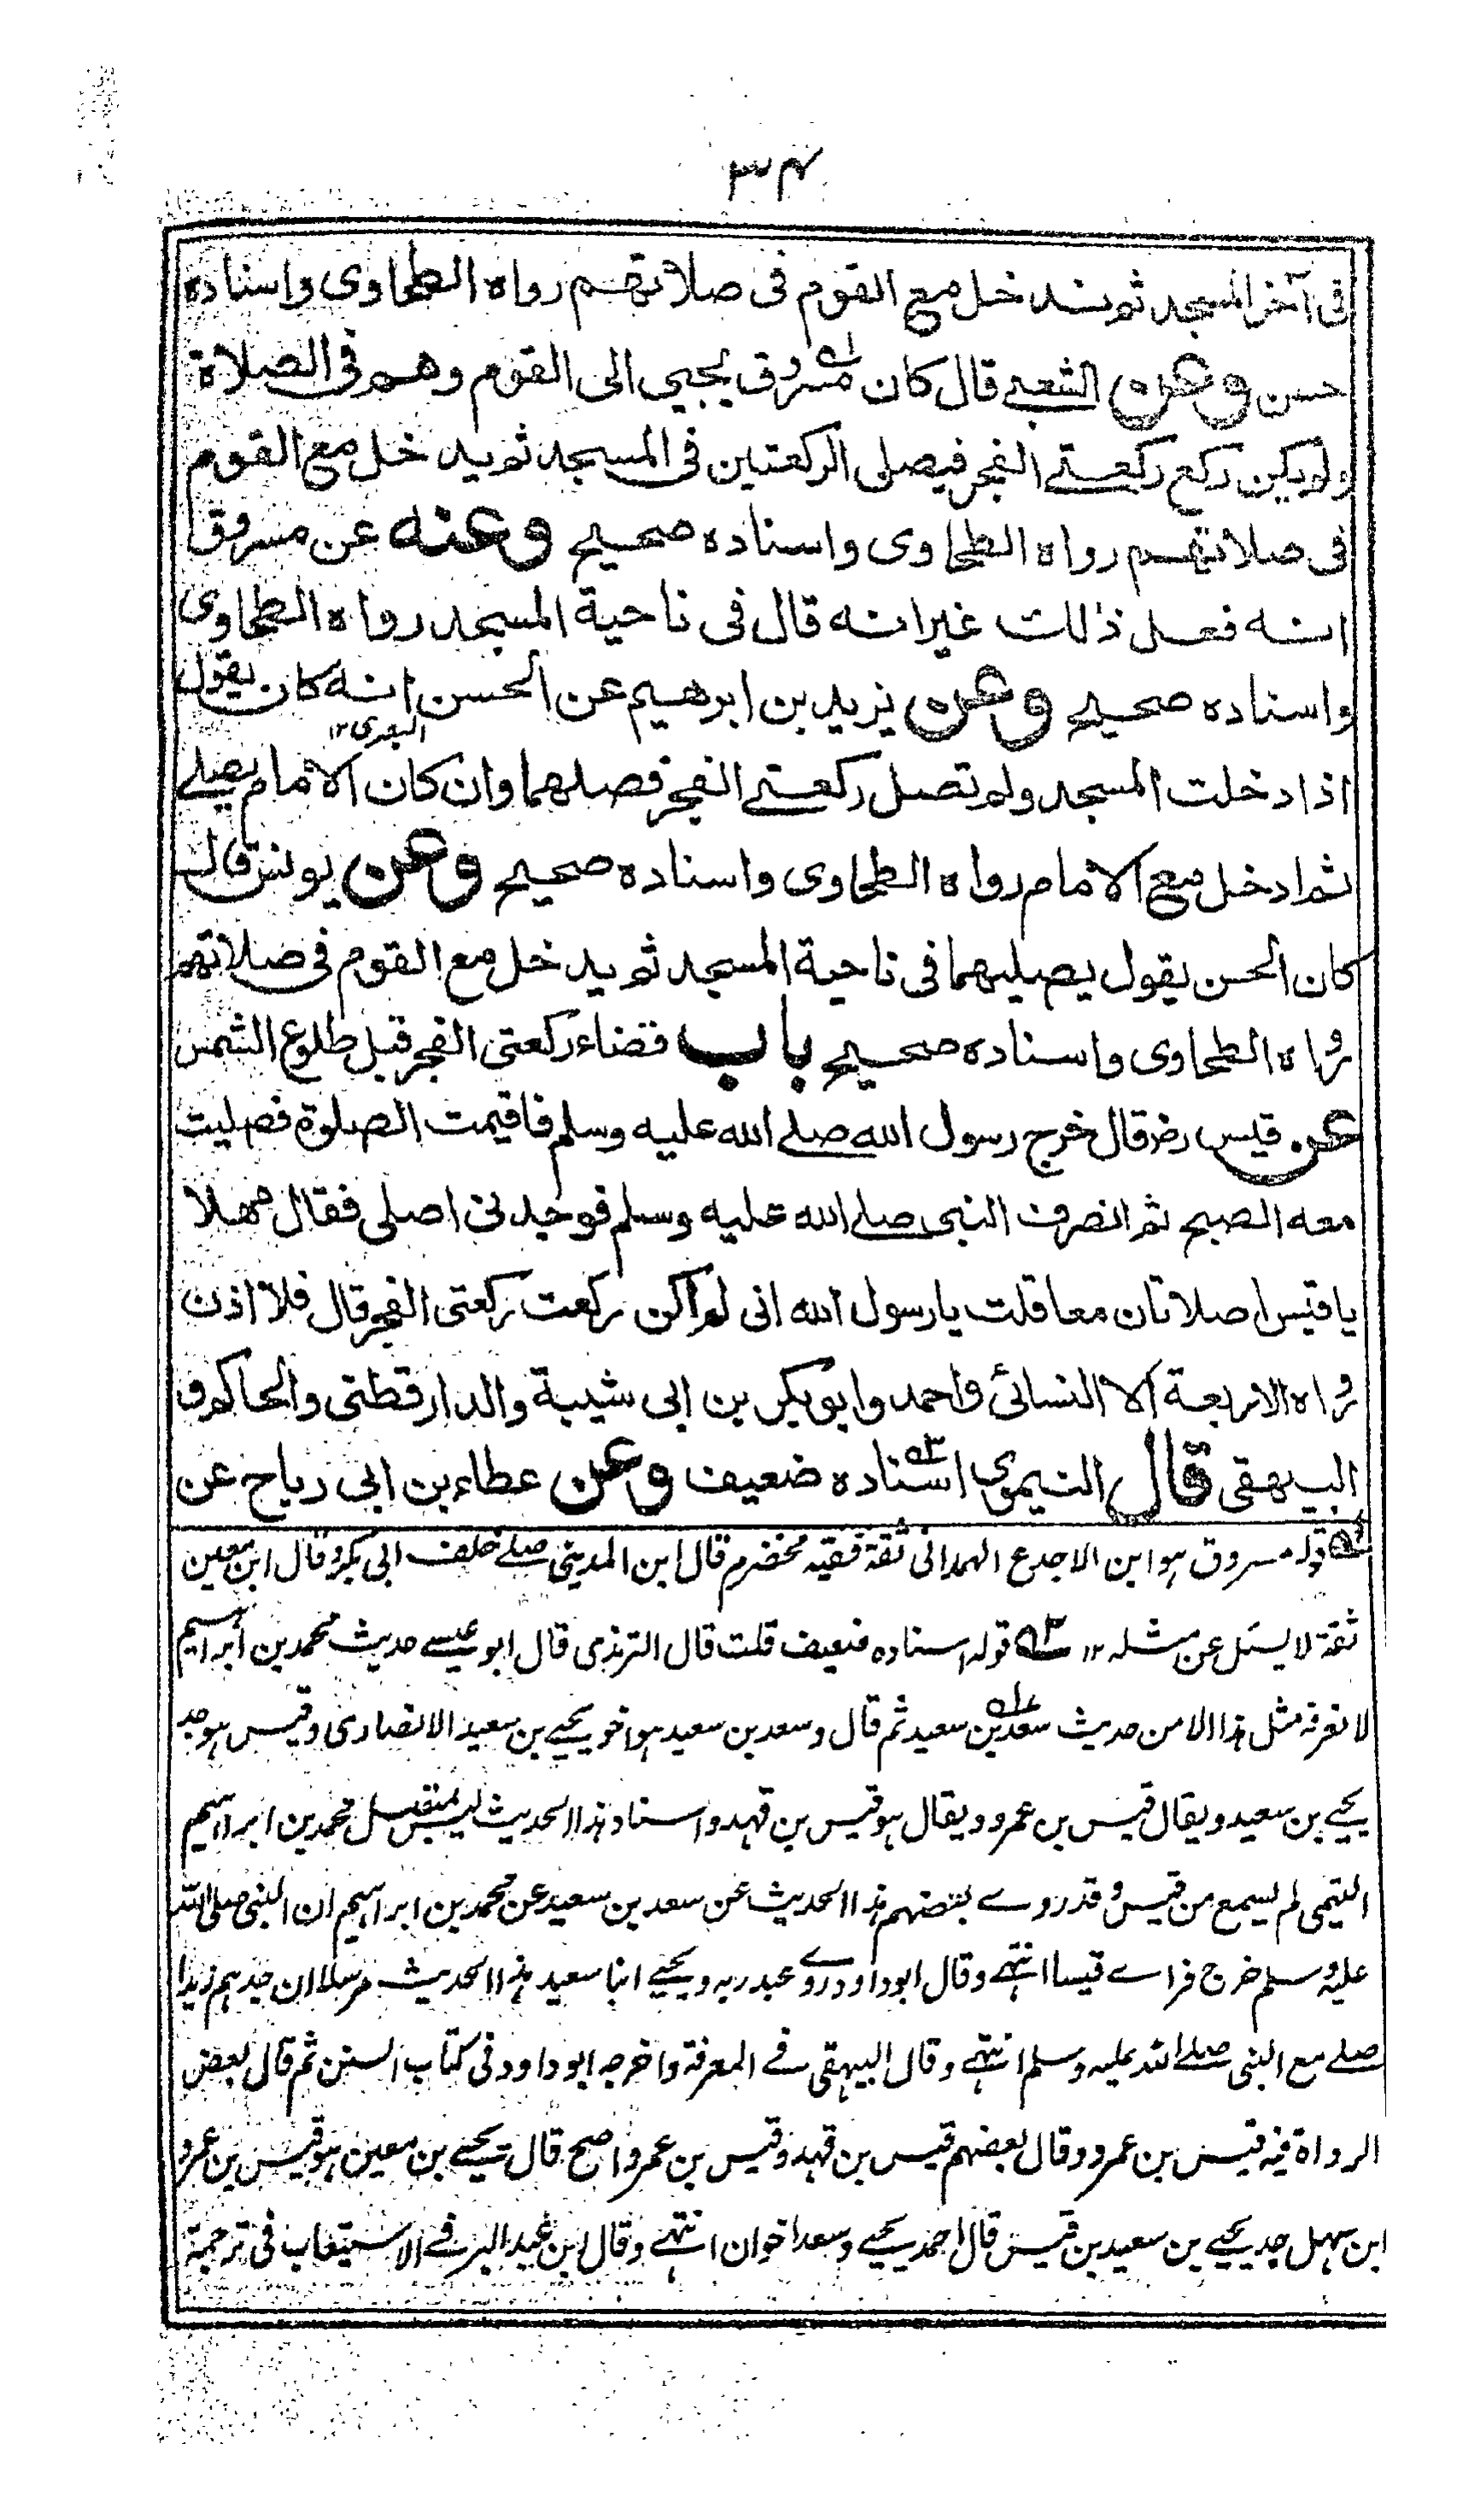 ٣٤
فى آخر المسجد ثم يدخل مع القوم فى صلاتهم رواه الطحاوى واسناده
حسن وعن الشعبے قال كان مسروق يجيى الى القوم وهم فى الصلاة
ولم يكن ركع ركعتے الفجر فيصلى الركعتين فى المسجد ثم يدخل مع القوم
فى صلاتهم رواه الطحاوى واسناده صحيح وعنه عن مسروق
انه فعل ذلك غير انه قال فى ناحية المسجد رواه الطحاوى
واسناده صحيح وعن يزيد بن ابرهيم عن الحسن انه كان يقول
البصرى ١٢
اذا دخلت المسجد ولم تصل ركعتے الفجر فصلهما وان كان الامام يصلے
ثم ادخل مع الامام رواه الطحاوى واسناده صحيح وعن يونس قال
كان الحسن يقول يصليهما فى ناحية المسجد ثم يدخل مع القوم فى صلاتهم
رواه الطحاوى واسناده صحيح باب قضاء ركعتى الفجر قبل طلوع الشمس
عن قيس رض قال خرج رسول الله صلے الله عليه وسلم فاقيمت الصلوة فصليت
معه الصبح ثم انصرف النبى صلے الله عليه وسلم فوجدنى اصلى فقال مهلا
يا قيس اصلاتان معا قلت يا رسول الله انى لم اكن ركعت ركعتى الفجر قال فلا اذن
رواه الاربعة الا النسائى واحمد وابو بكر بن ابى شيبة والدارقطنى والحاكم و
البيهقى قال النيموى اسناده ضعيف وعن عطاء بن ابى رباح عن
لے قوله مسروق ہو ابن الاجدع الهمدانى ثقة فقيه مخضرم قال ابن المدينى صلے خلف ابى بكر وقال ابن معين
ثقة لا يسئل عن مثله ١٢ قوله اسناده ضعيف قلت قال الترمذى قال ابو عيسے حديث محمد بن ابراہيم
لا نعرفه مثل ہذا الا من حديث سعد بن سعيد ثم قال وسعد بن سعيد ہو اخو يحيے بن سعيد الانصارى وقيس ہو جد
يحيے بن سعيد ويقال قيس بن عمرو ويقال ہو قيس بن قہد واسناد ہذا الحديث ليس بمتصل محمد بن ابراہيم
التيمى لم يسمع من قيس وقد روے بعضہم ہذا الحديث عن سعد بن سعيد عن محمد بن ابراہيم ان النبى صلى الله
عليه وسلم خرج فراے قيسا انتہے وقال ابو داود روے عبد ربه ويحيے ابنا سعيد ہذا الحديث مرسلا ان جدہم زيدا
صلے مع النبى صلے الله عليه وسلم انتہے وقال البيہقى فے المعرفة واخرجه ابو داود فى كتاب السنن ثم قال بعض
الرواة فيه قيس بن عمرو وقال بعضہم قيس بن قہد وقيس بن عمرو اصح قال يحيے بن معين ہو قيس بن عمرو
ابن سہل جد يحيے بن سعيد بن قيس قال احمد يحيے وسعد اخوان انتہے وقال ابن عبد البر فے الاستيعاب فى ترجمة